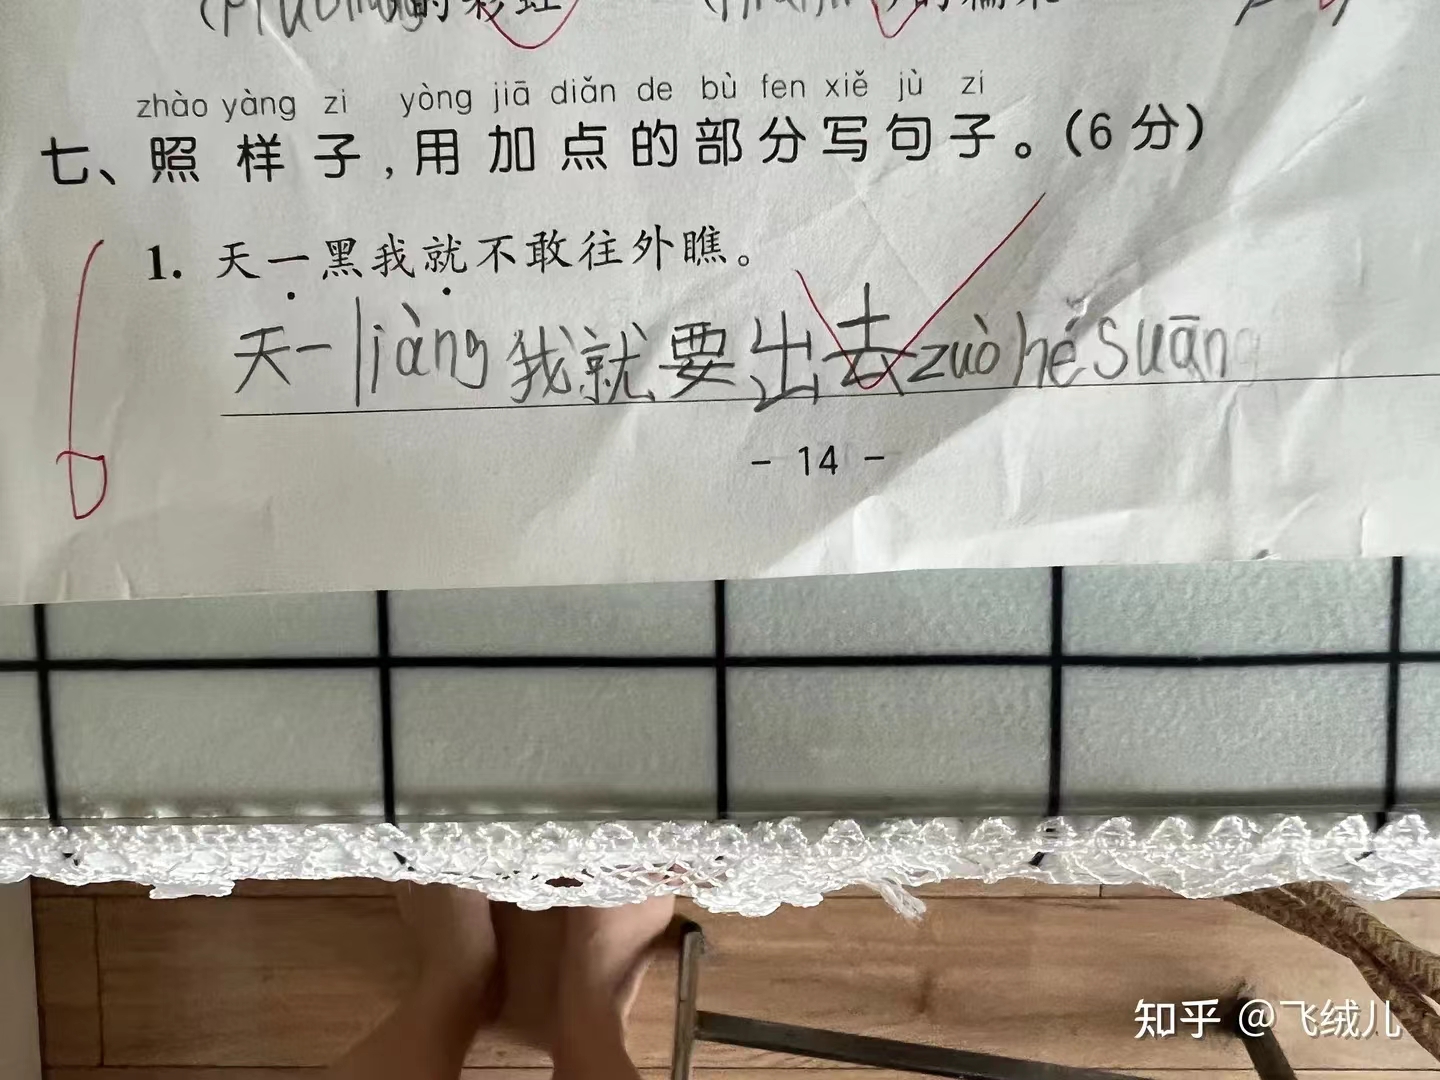 的彩虹
zhào yàng zi yòng jiā diǎn de bù fen xiě jù zi
七、照样子,用加点的部分写句子。(6分)
1. 天一黑我就不敢往外瞧。
天一liàng我就要出去zuò hé suān
- 14 -
6
知乎 @飞绒儿